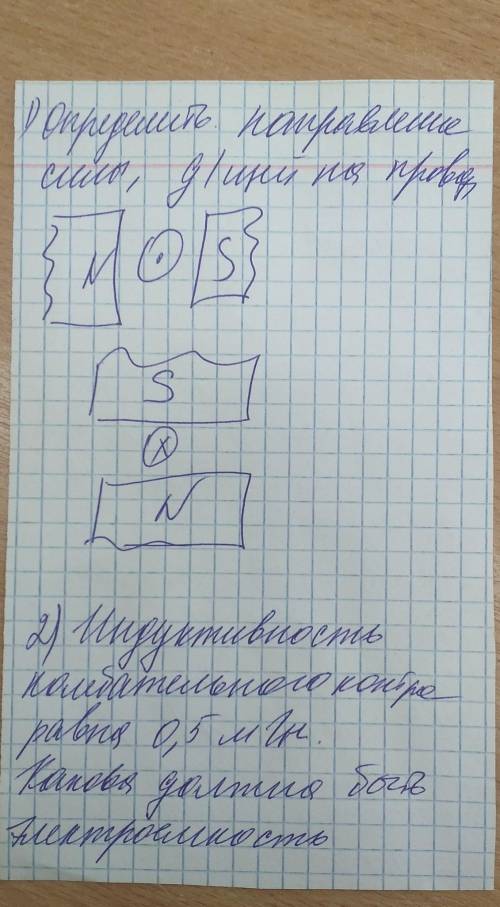 1) Определить направление
силы, д/щей на провод
N S
S
N
2) Индуктивность
колебательного контра
равна 0,5 мГн.
Какова должна быть
электроемкость